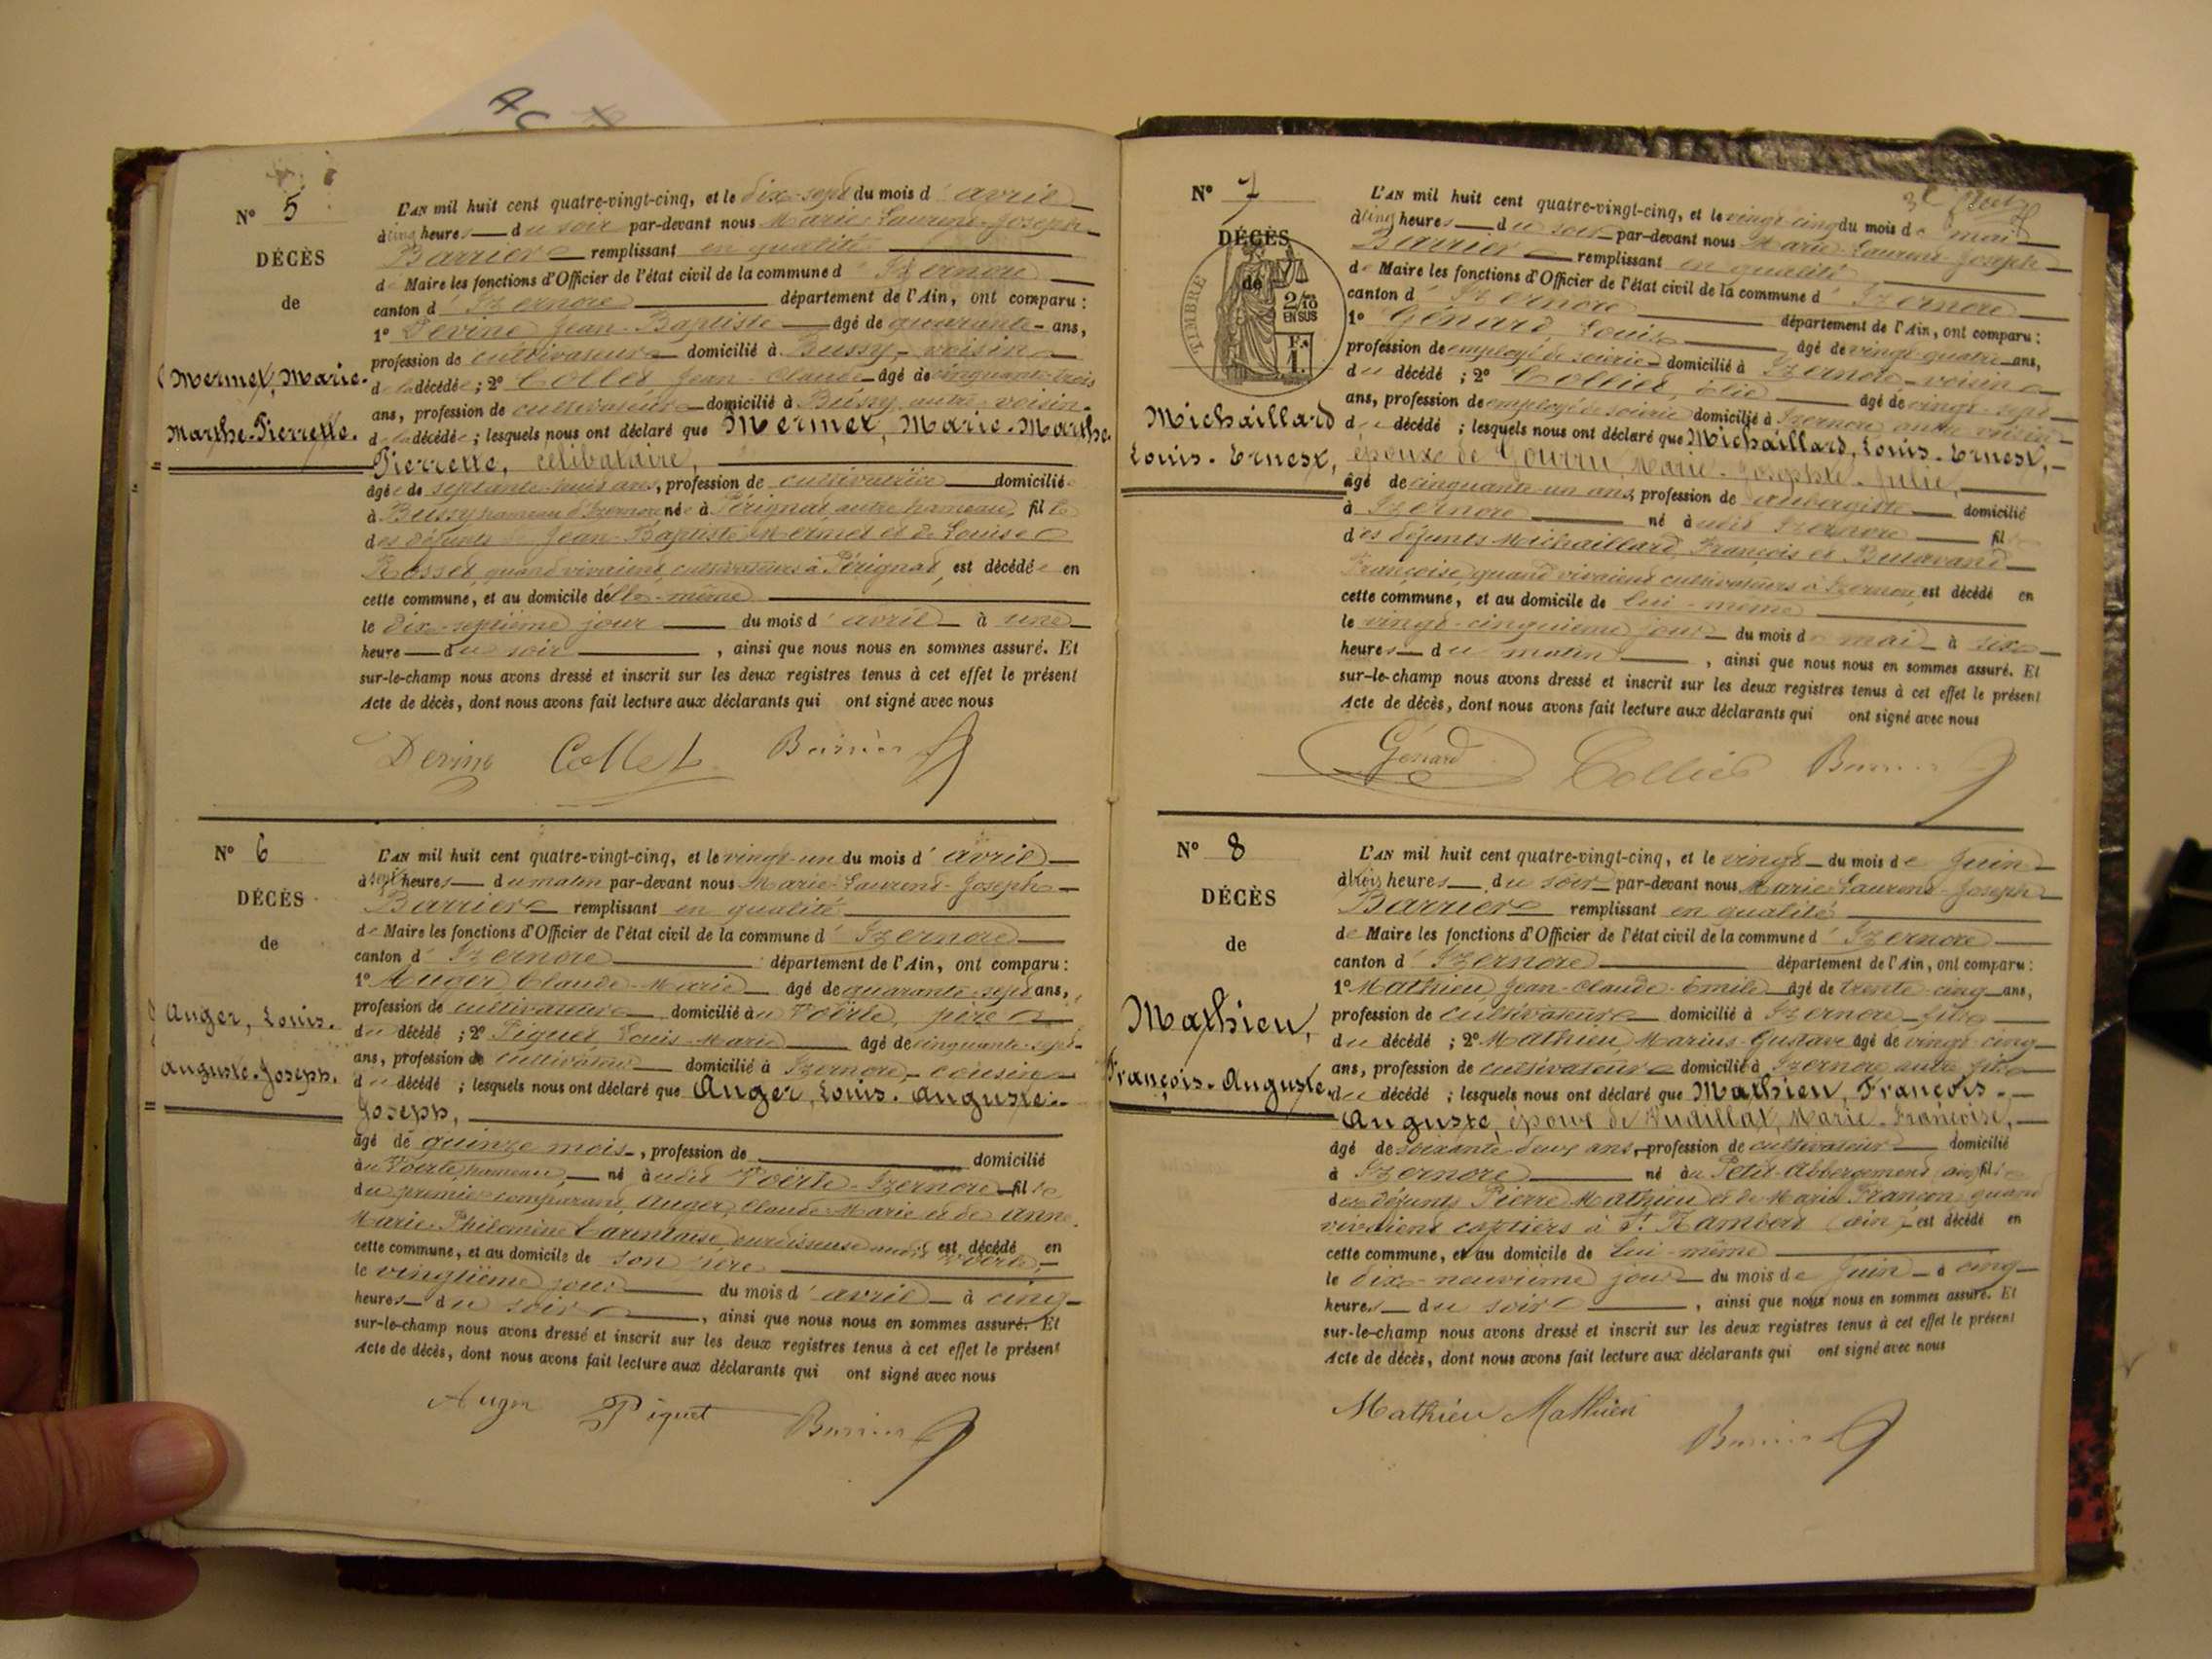 AC
N° 5
DÉCÈS
de
Mermet, Marie-
Marthe-Pierrette.
L'AN mil huit cent quatre-vingt-cinq, et le dix-sept du mois d'avril
à cinq heures du soir par-devant nous Marie-Laurent-Joseph
Barrier remplissant en qualité
de Maire les fonctions d'Officier de l'état civil de la commune d'Izernore
canton d'Izernore département de l'Ain, ont comparu :
1° Devine Jean-Baptiste âgé de quarante ans,
profession de cultivateur domicilié à Bussy, voisin
de la décédée ; 2° Collet Jean-Claude âgé de cinquante-trois
ans, profession de cultivateur domicilié à Bussy autre voisin
de la décédée ; lesquels nous ont déclaré que Mermet, Marie-Marthe-
Pierrette, célibataire,
âgée de septante-huit ans, profession de cultivatrice domiciliée
à Bussy hameau d'Izernore née à Pérignat autre hameau, fille
des défunts Jean-Baptiste Mermet et de Louise
Rosset, quand vivaient cultivateurs à Pérignat, est décédée en
cette commune, et au domicile d'elle-même
le dix-septième jour du mois d'avril à une
heure du soir, ainsi que nous nous en sommes assuré. Et
sur-le-champ nous avons dressé et inscrit sur les deux registres tenus à cet effet le présent
Acte de décès, dont nous avons fait lecture aux déclarants qui ont signé avec nous
Devine Collet Barrier
N° 6
DÉCÈS
de
Auger, Louis-
Auguste-Joseph.
L'AN mil huit cent quatre-vingt-cinq, et le vingt-un du mois d'avril
à sept heures du matin par-devant nous Marie-Laurent-Joseph
Barrier remplissant en qualité
de Maire les fonctions d'Officier de l'état civil de la commune d'Izernore
canton d'Izernore département de l'Ain, ont comparu :
1° Auger Claude-Marie âgé de quarante-sept ans,
profession de cultivateur domicilié au Voërle, père
du décédé ; 2° Piquet, Louis-Marie âgé de cinquante-sept
ans, profession de cultivateur domicilié à Izernore, cousin
du décédé ; lesquels nous ont déclaré que Auger, Louis-Auguste-
Joseph,
âgé de quinze mois, profession de domicilié
au Voerle, hameau, né audit Voërle-Izernore fils
du premier comparant, Auger, Claude-Marie et de Anne-
Marie-Philomène Tarentaise, ourdisseuse audit Voërle, est décédé en
cette commune, et au domicile de son père
le vingtième jour du mois d'avril à cinq
heures du soir, ainsi que nous nous en sommes assuré. Et
sur-le-champ nous avons dressé et inscrit sur les deux registres tenus à cet effet le présent
Acte de décès, dont nous avons fait lecture aux déclarants qui ont signé avec nous
Auger Piquet Barrier
N° 7
DÉCÈS
de
TIMBRE
2/10 EN SUS
F. 1.
Michaillard
Louis-Ernest,
L'AN mil huit cent quatre-vingt-cinq, et le vingt-cinq du mois de mai
à cinq heures du soir par-devant nous Marie-Laurent-Joseph
Barrier remplissant en qualité
de Maire les fonctions d'Officier de l'état civil de la commune d'Izernore
canton d'Izernore département de l'Ain, ont comparu :
1° Génard, Louis âgé de vingt-quatre ans,
profession de employé de soierie domicilié à Izernore voisin
du décédé ; 2° Collier, élie âgé de vingt-sept
ans, profession de employé de soierie domicilié à Izernore autre voisin
du décédé ; lesquels nous ont déclaré que Michaillard, Louis-Ernest,
époux de Gourru, Marie-Josephte-Julie,
âgé de cinquante-un ans, profession de aubergiste domicilié
à Izernore né audit Izernore fils
des défunts Michaillard, François et Butavand
Françoise, quand vivaient cultivateurs à Izernore, est décédé en
cette commune, et au domicile de lui-même
le vingt-cinquième jour du mois de mai à six
heures du matin, ainsi que nous nous en sommes assuré. Et
sur-le-champ nous avons dressé et inscrit sur les deux registres tenus à cet effet le présent
Acte de décès, dont nous avons fait lecture aux déclarants qui ont signé avec nous
Génard Collier Barrier
N° 8
DÉCÈS
de
Mathieu,
François-Auguste.
L'AN mil huit cent quatre-vingt-cinq, et le vingt du mois de Juin
à trois heures du soir par-devant nous Marie-Laurent-Joseph
Barrier remplissant en qualité
de Maire les fonctions d'Officier de l'état civil de la commune d'Izernore
canton d'Izernore département de l'Ain, ont comparu :
1° Mathieu, Jean-Claude-Emile âgé de trente-cinq ans,
profession de cultivateur domicilié à Izernore fils
du décédé ; 2° Mathieu, Marius-Gustave âgé de vingt-cinq
ans, profession de cultivateur domicilié à Izernore autre fils
du décédé ; lesquels nous ont déclaré que Mathieu, François-
Auguste, époux de Vuaillat, Marie-Françoise,
âgé de soixante-deux ans, profession de cultivateur domicilié
à Izernore né au Petit-Abbergement (ain) fils
des défunts Pierre Mathieu et de Marie Françon, quand
vivaient coptiers à St Rambert (ain), est décédé en
cette commune, et au domicile de lui-même
le dix-neuvième jour du mois de Juin à cinq
heures du soir, ainsi que nous nous en sommes assuré. Et
sur-le-champ nous avons dressé et inscrit sur les deux registres tenus à cet effet le présent
Acte de décès, dont nous avons fait lecture aux déclarants qui ont signé avec nous
Mathieu Mathieu Barrier